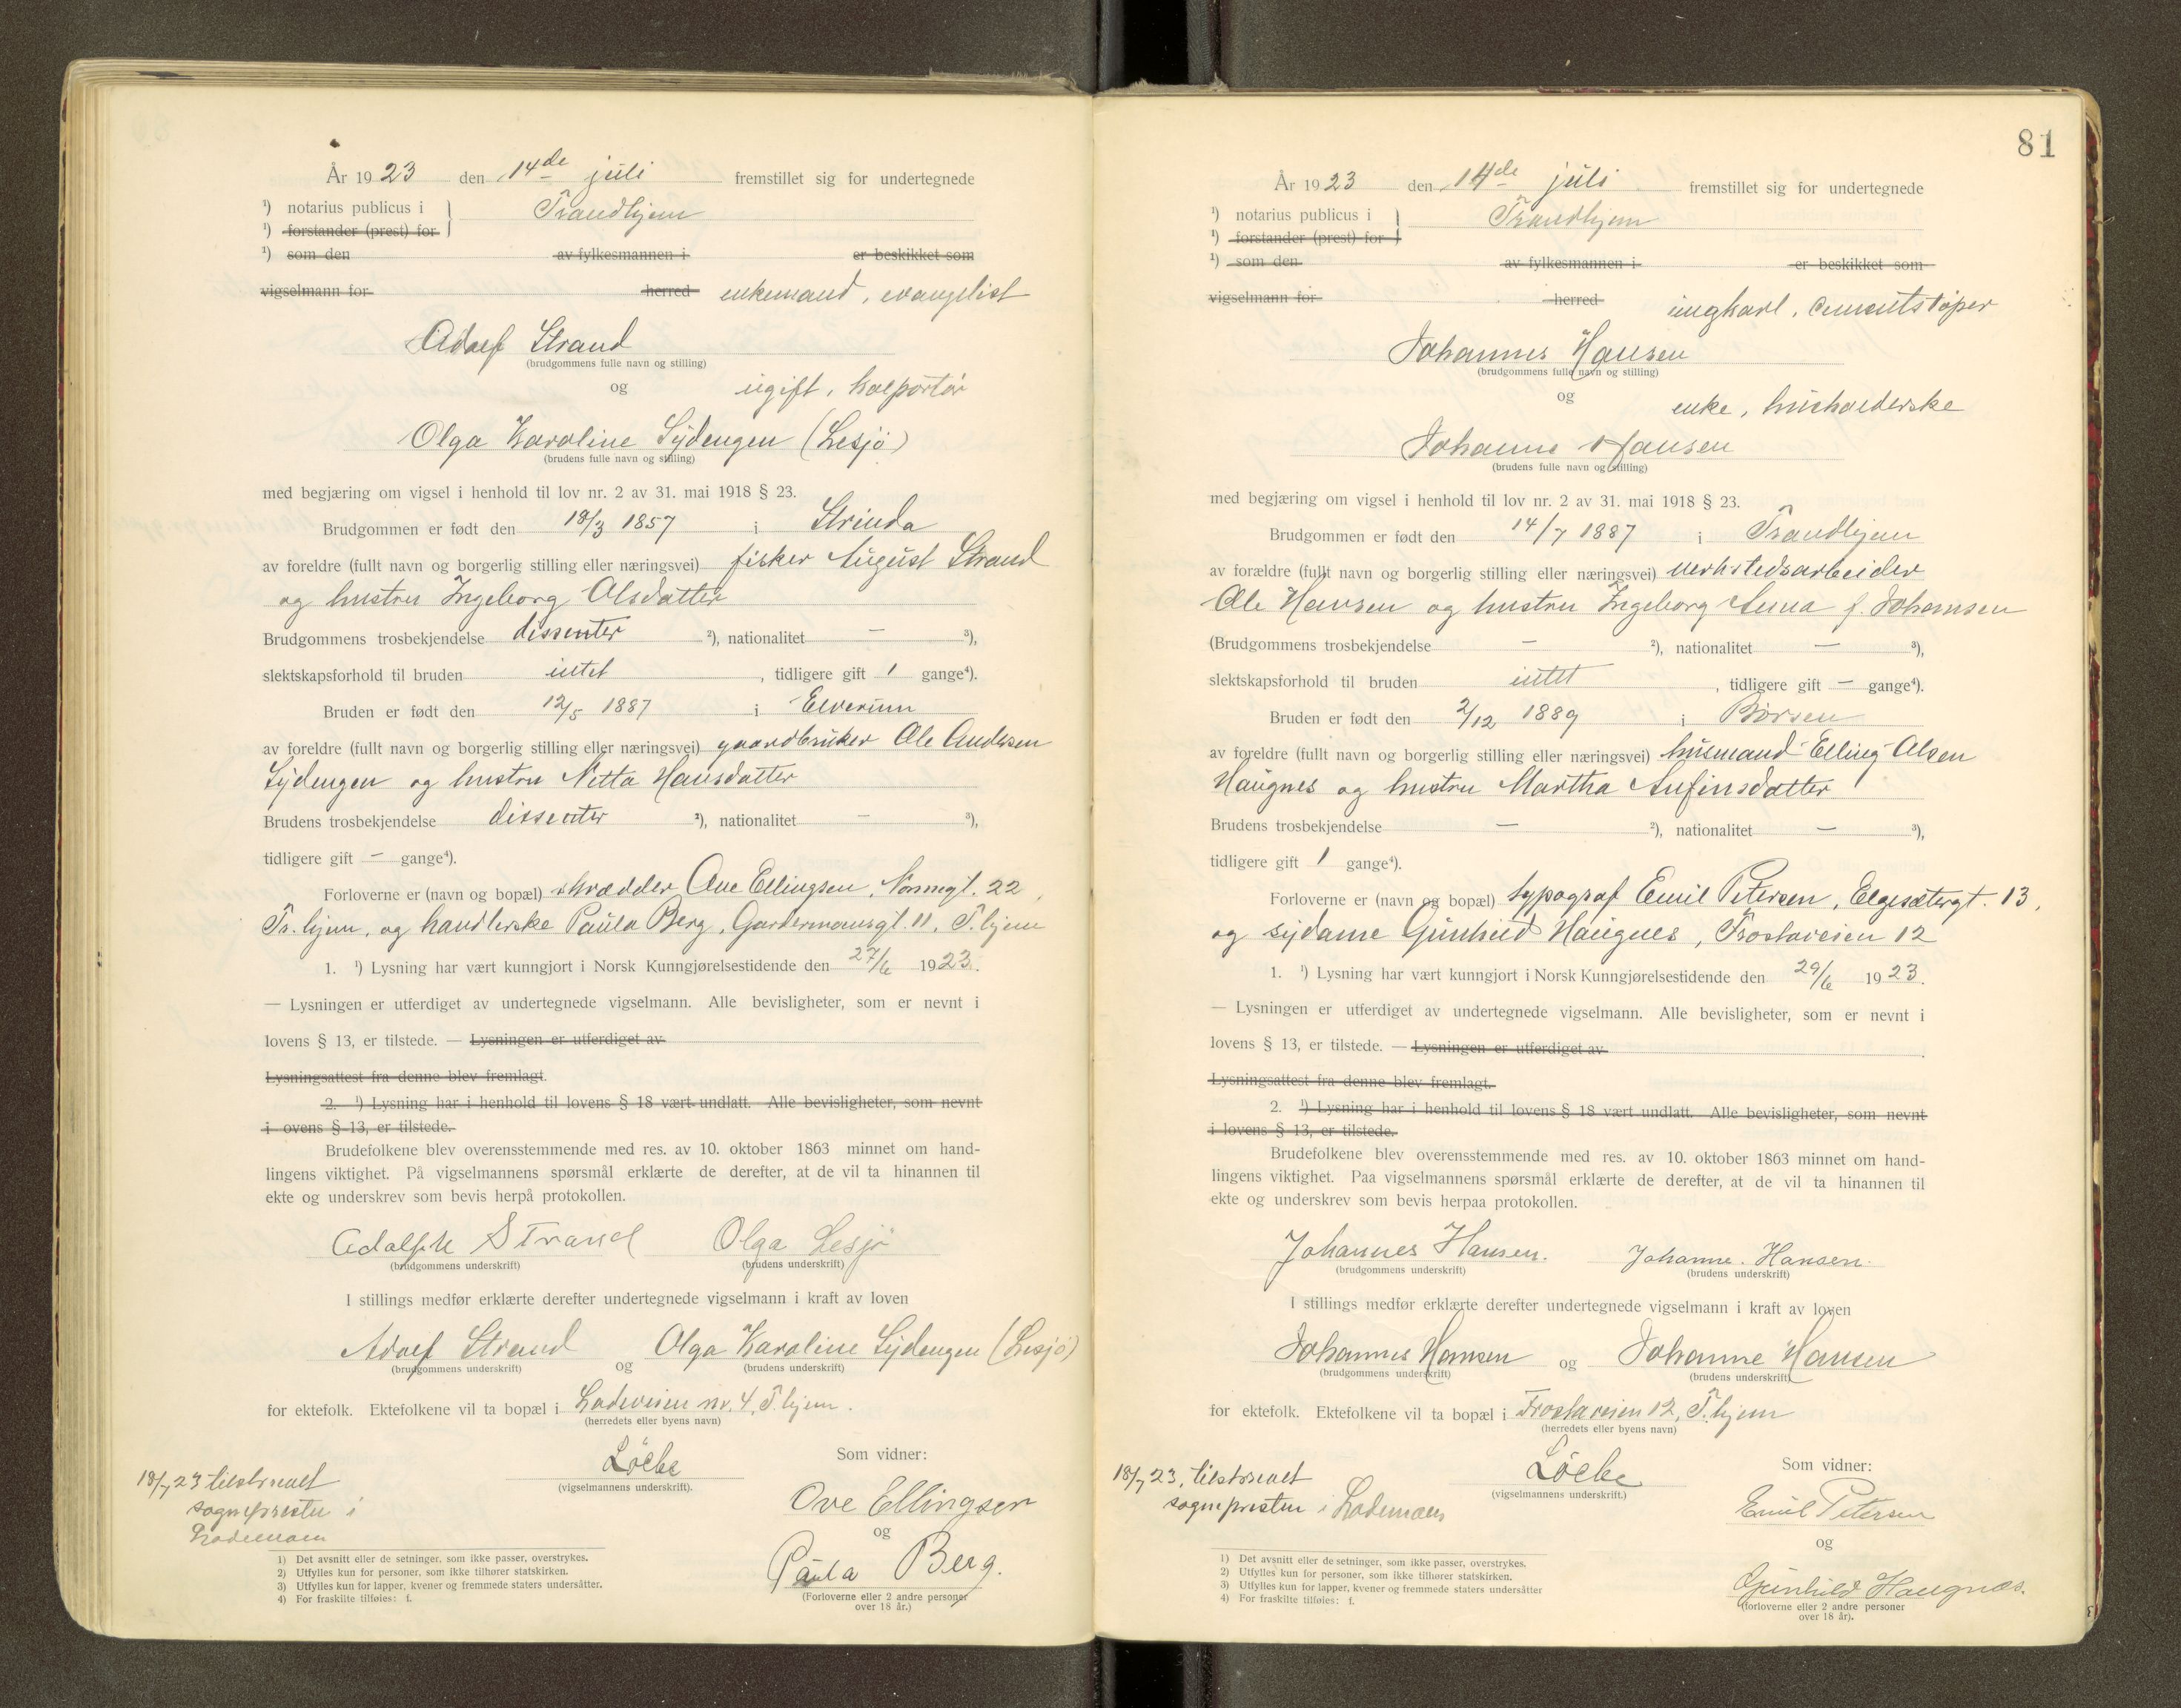 År 1923 den 14de juli fremstillet sig for undertegnede
1) notarius publicus i } Trondhjem
1) forstander (prest) for
1) som den av fylkesmannen i er beskikket som
vigselmann for herred enkemand, evangelist
Adolf Strand
(brudgommens fulle navn og stilling)
og ugift, kolportør
Olga Karoline Sydengen (Lesjö)
(brudens fulle navn og stilling)
med begjæring om vigsel i henhold til lov nr. 2 av 31. mai 1918 § 23.
Brudgommen er født den 18/3 1857 i Strinda
av foreldre (fullt navn og borgerlig stilling eller næringsvei) fisker August Strand
og hustru Ingeborg Olsdatter
Brudgommens trosbekjendelse dissenter 2), nationalitet — 3),
slektskapsforhold til bruden intet, tidligere gift 1 gange4).
Bruden er født den 12/5 1887 i Elverum
av foreldre (fullt navn og borgerlig stilling eller næringsvei) gaardbruker Ole Andersen
Sydengen og hustru Netta Hansdatter
Brudens trosbekjendelse dissenter 2), nationalitet — 3),
tidligere gift — gange4).
Forloverne er (navn og bopæl) skrædder Ove Ellingsen, Nonnegt. 22,
Tr.hjem, og handlerske Paula Berg, Gardermonsgt. 11, T.hjem
1. 1) Lysning har vært kunngjort i Norsk Kunngjørelsestidende den 27/6 1923.
— Lysningen er utferdiget av undertegnede vigselmann. Alle bevisligheter, som er nevnt i
lovens § 13, er tilstede. — Lysningen er utferdiget av
Lysningsattest fra denne blev fremlagt.
2. 1) Lysning har i henhold til lovens § 18 vært undlatt. Alle bevisligheter, som nevnt
i ovens § 13, er tilstede.
Brudefolkene blev overensstemmende med res. av 10. oktober 1863 minnet om hand-
lingens viktighet. På vigselmannens spørsmål erklærte de derefter, at de vil ta hinannen til
ekte og underskrev som bevis herpå protokollen.
Adolph Strand Olga Lesjö
(brudgommens underskrift) (brudens underskrift)
I stillings medfør erklærte derefter undertegnede vigselmann i kraft av loven
Adolf Strand og Olga Karoline Sydengen (Lesjö)
(brudgommens underskrift) (brudens underskrift)
for ektefolk. Ektefolkene vil ta bopæl i Ladeveien nr. 4, T.hjem.
(herredets eller byens navn)
Löche
(vigselmannens underskrift).
Som vidner:
18/7 23 tilskrevet
sognepresten i
Lademoen
Ove Ellingsen
og
Paula Berg.
(Forloverne eller 2 andre personer
over 18 år.)
1) Det avsnitt eller de setninger, som ikke passer, overstrykes.
2) Utfylles kun for personer, som ikke tilhører statskirken.
3) Utfylles kun for lapper, kvener og fremmede staters undersåtter.
4) For fraskilte tilføies: f.
81
År 1923 den 14de juli fremstillet sig for undertegnede
1) notarius publicus i } Trondhjem
1) forstander (prest) for
1) som den av fylkesmannen i er beskikket som
vigselmann for herred ungkarl, cementstøper
Johannes Hansen
(brudgommens fulle navn og stilling)
og enke, husholderske
Johanne Hansen
(brudens fulle navn og stilling)
med begjæring om vigsel i henhold til lov nr. 2 av 31. mai 1918 § 23.
Brudgommen er født den 14/7 1887 i Trondhjem
av forældre (fullt navn og borgerlig stilling eller næringsvei) verkstedsarbeider
Ole Hansen og hustru Ingeborg Anna f. Johansen
(Brudgommens trosbekjendelse — 2), nationalitet — 3),
slektskapsforhold til bruden intet, tidligere gift — gange4).
Bruden er født den 2/12 1889 i Börsen
av foreldre (fullt navn og borgerlig stilling eller næringsvei) husmand Elling Olsen
Haugnes og hustru Martha Anfinsdatter
Brudens trosbekjendelse — 2), nationalitet — 3),
tidligere gift 1 gange4).
Forloverne er (navn og bopæl) typograf Emil Petersen, Elgesætergt. 13,
og sydame Gunhild Haugnes, Frostaveien 12
1. 1) Lysning har vært kunngjort i Norsk Kunngjørelsestidende den 29/6 1923.
— Lysningen er utferdiget av undertegnede vigselmann. Alle bevisligheter, som er nevnt i
lovens § 13, er tilstede. — Lysningen er utferdiget av
Lysningsattest fra denne blev fremlagt.
2. 1) Lysning har i henhold til lovens § 18 vært undlatt. Alle bevisligheter, som nevnt
i lovens § 13, er tilstede.
Brudefolkene blev overensstemmende med res. av 10. oktober 1863 minnet om hand-
lingens viktighet. Paa vigselmannens spørsmål erklærte de derefter, at de vil ta hinannen til
ekte og underskrev som bevis herpaa protokollen.
Johannes Hansen. Johanne. Hansen.
(brudgommens underskrift) (brudens underskrift)
I stillings medfør erklærte derefter undertegnede vigselmann i kraft av loven
Johannes Hansen og Johanne Hansen
(brudgommens underskrift) (brudens underskrift)
for ektefolk. Ektefolkene vil ta bopæl i Frostaveien 12, T.hjem
(herredets eller byens navn)
Löche
(vigselmannens underskrift.)
Som vidner:
18/7 23, tilskrevet
sognepresten i Lademoen
Emil Petersen
og
Gunhild Haugnæs.
(forloverne eller 2 andre personer
over 18 år).
1) Det avsnitt eller de setninger, som ikke passer, overstrykes.
2) Utfylles kun for personer, som ikke tilhører statskirken.
3) Utfylles kun for lapper, kvener og fremmede staters undersåtter
4) For fraskilte tilføies: f.